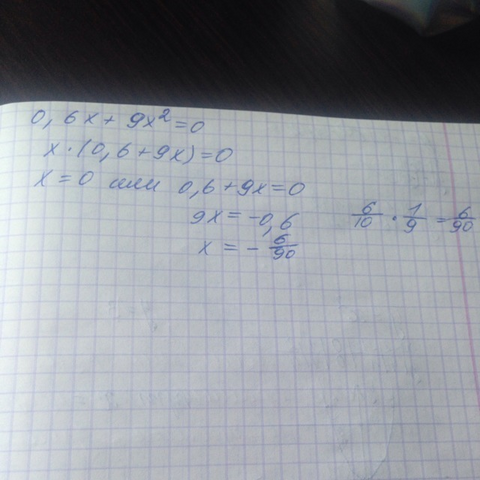 0,6x + 9x² = 0
x · (0,6 + 9x) = 0
x = 0 или 0,6 + 9x = 0
9x = -0,6
x = - 6/90
6/10 · 1/9 = 6/90